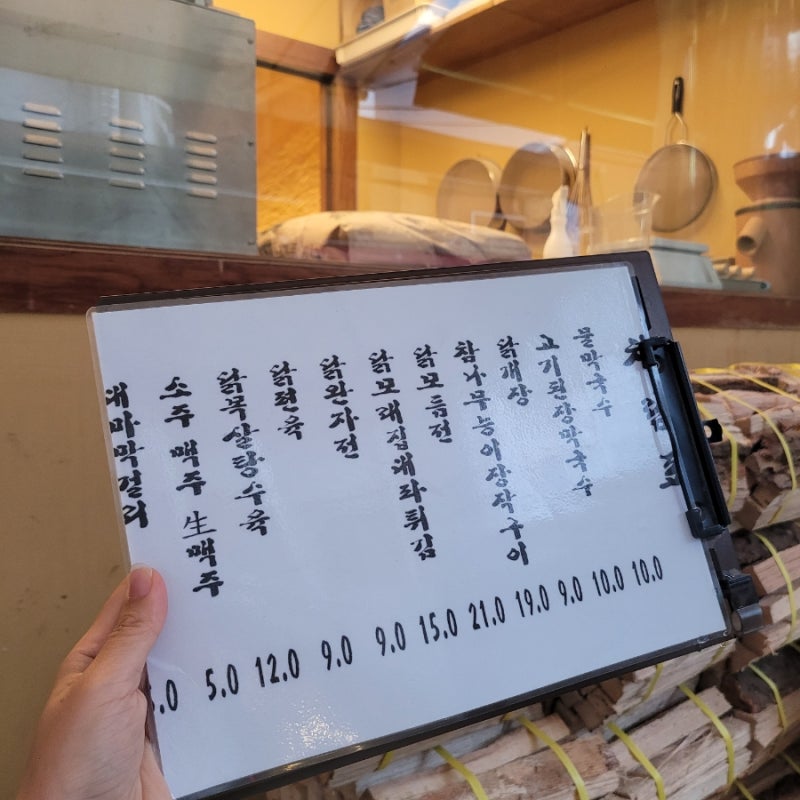 물막국수 10.0
고기된장막국수 10.0
닭개장 9.0
참나무능이장작구이 19.0
닭모듬전 21.0
닭모래집대파튀김 15.0
닭완자전 9.0
닭편육 9.0
닭목살탕수육 12.0
소주 맥주 生맥주 5.0
대마막걸리